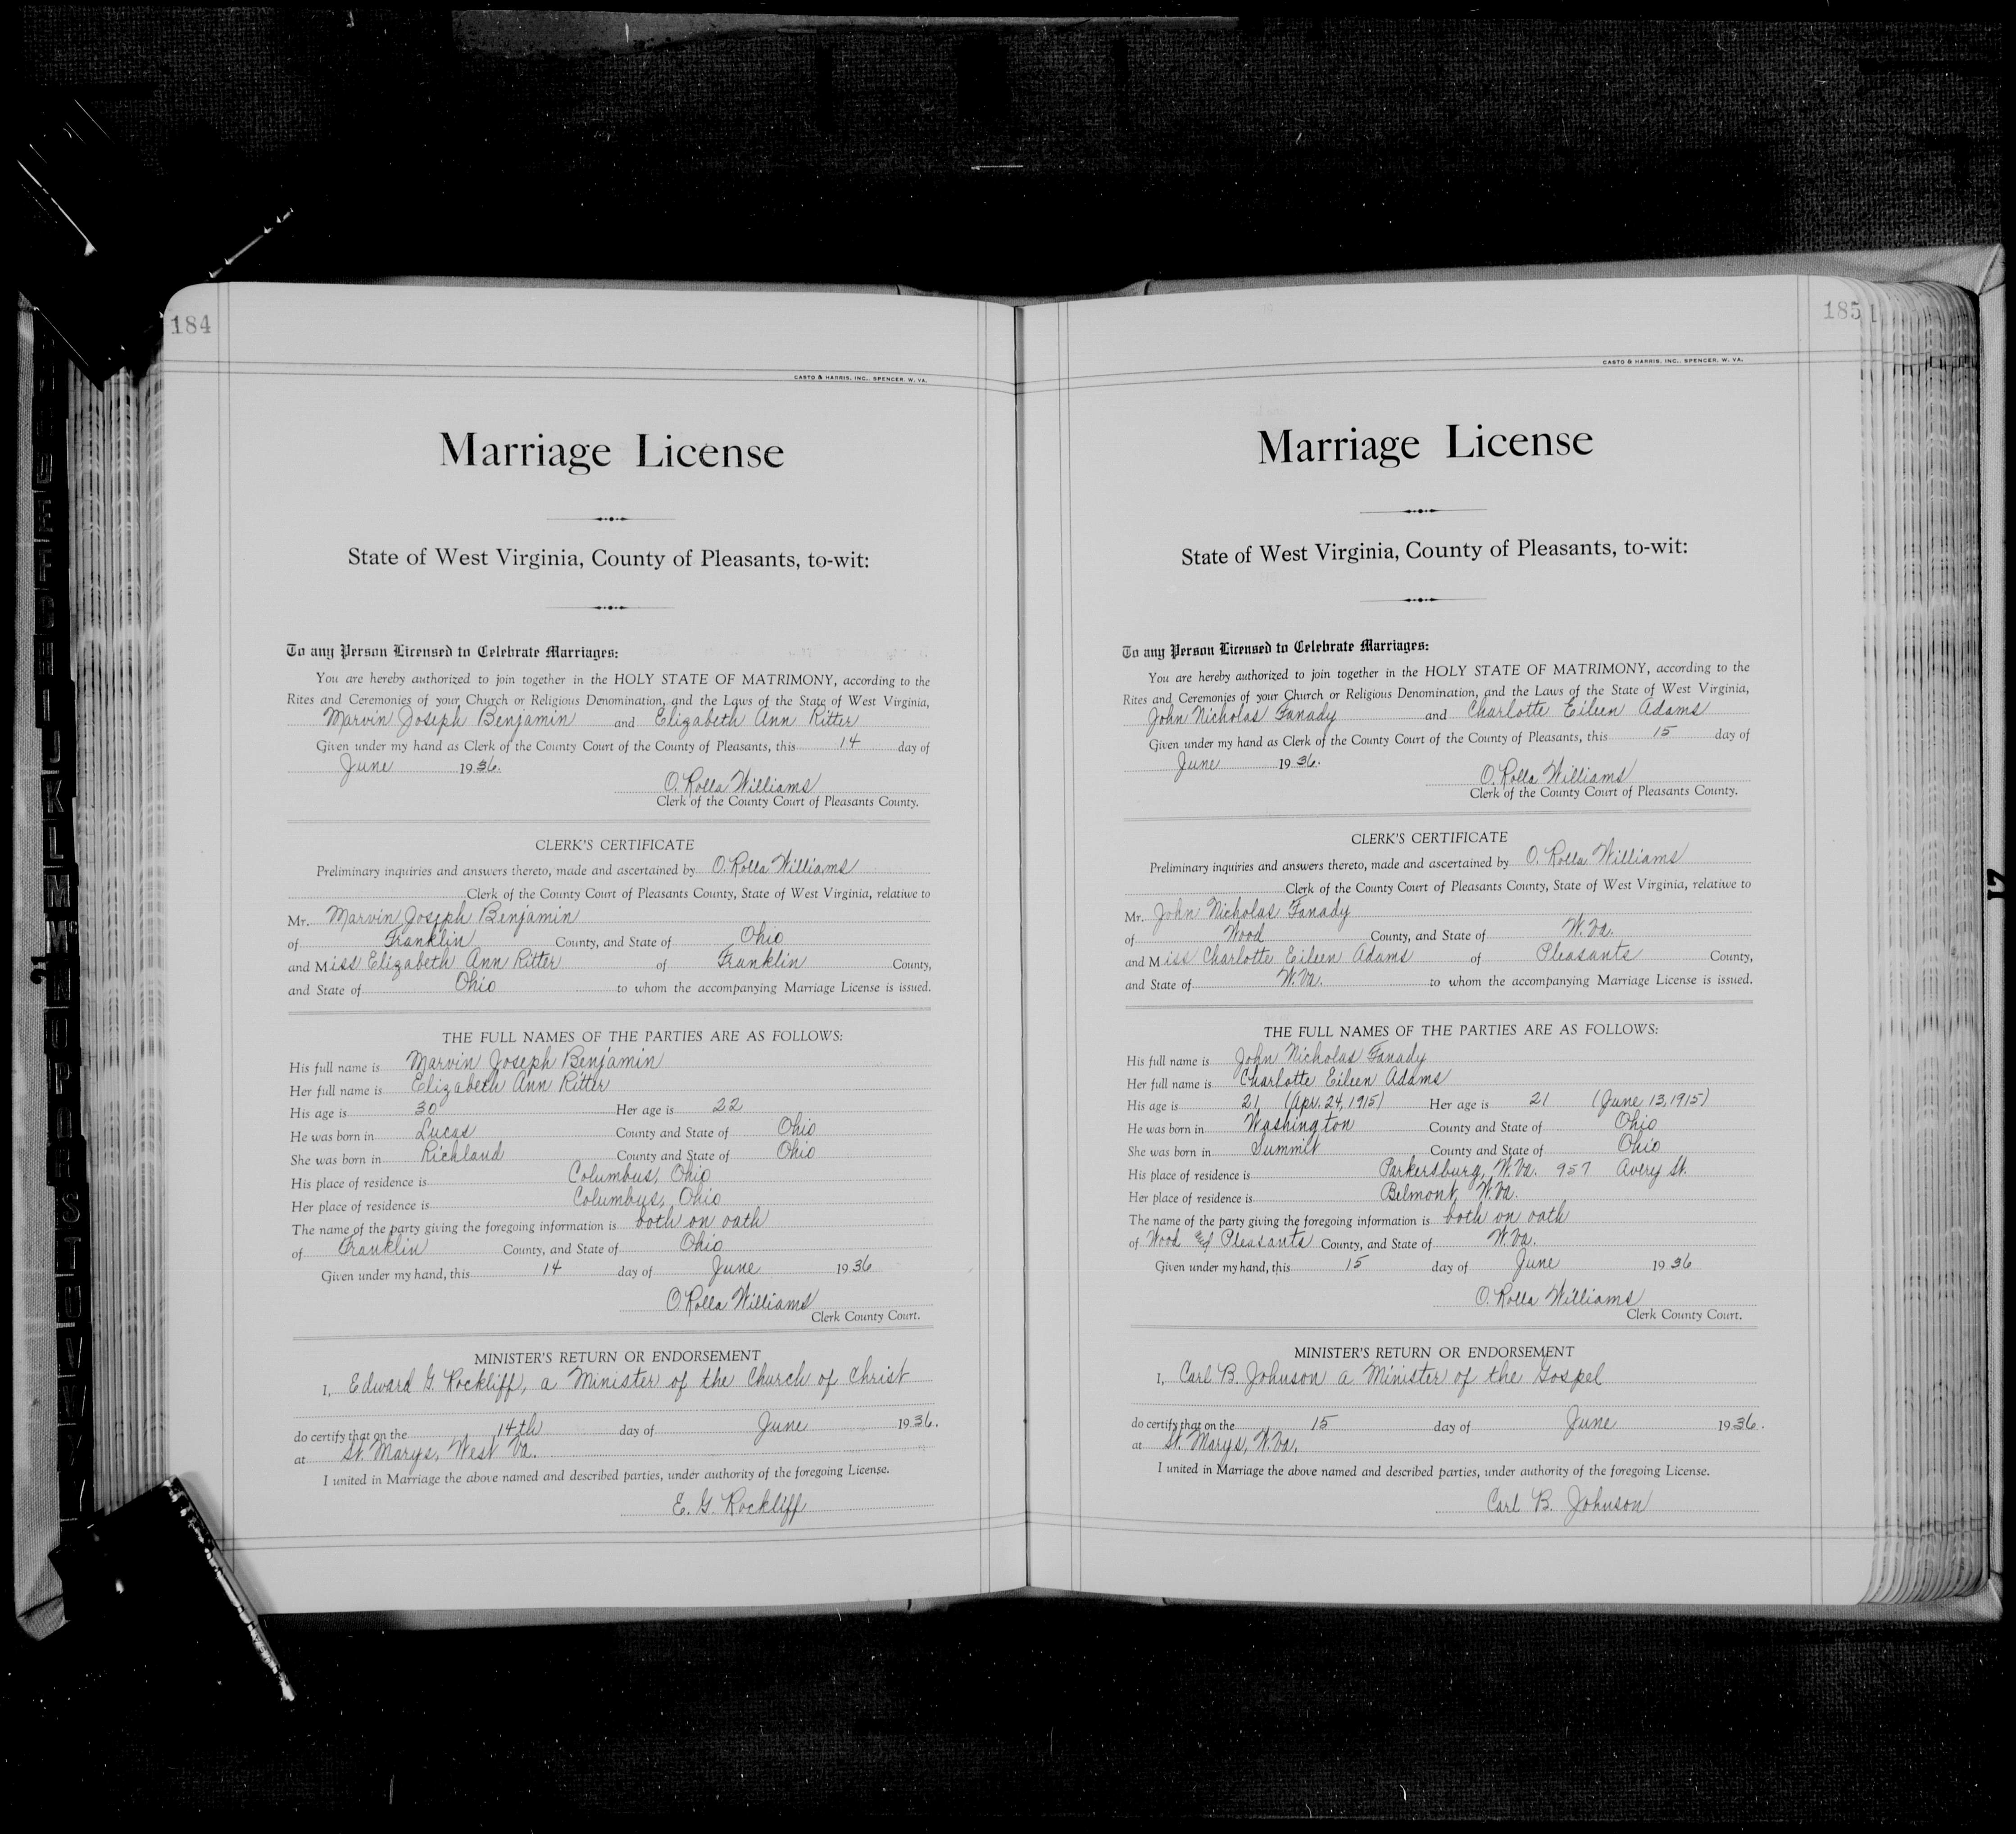 184
CASTO & HARRIS, INC., SPENCER, W. VA.
Marriage License
State of West Virginia, County of Pleasants, to-wit:
To any Person Licensed to Celebrate Marriages:
You are hereby authorized to join together in the HOLY STATE OF MATRIMONY, according to the
Rites and Ceremonies of your Church or Religious Denomination, and the Laws of the State of West Virginia,
Marvin Joseph Benjamin and Elizabeth Ann Ritter
Given under my hand as Clerk of the County Court of the County of Pleasants, this 14 day of
June 1936.
O. Rolla Williams
Clerk of the County Court of Pleasants County.
CLERK'S CERTIFICATE
Preliminary inquiries and answers thereto, made and ascertained by O. Rolla Williams
Clerk of the County Court of Pleasants County, State of West Virginia, relatiwe to
Mr. Marvin Joseph Benjamin
of Franklin County, and State of Ohio
and Miss Elizabeth Ann Ritter of Franklin County,
and State of Ohio to whom the accompanying Marriage License is issued.
THE FULL NAMES OF THE PARTIES ARE AS FOLLOWS:
His full name is Marvin Joseph Benjamin
Her full name is Elizabeth Ann Ritter
His age is 30 Her age is 22
He was born in Lucas County and State of Ohio
She was born in Richland County and State of Ohio
His place of residence is Columbus, Ohio
Her place of residence is Columbus, Ohio
The name of the party giving the foregoing information is both on oath
of Franklin County, and State of Ohio
Given under my hand, this 14 day of June 1936
O. Rolla Williams
Clerk County Court.
MINISTER'S RETURN OR ENDORSEMENT
I, Edward G. Rockliff, a Minister of the Church of Christ
do certify that on the 14th day of June 1936.
at St. Marys, West Va.
I united in Marriage the above named and described parties, under authority of the foregoing License.
E. G. Rockliff
185
CASTO & HARRIS, INC., SPENCER, W. VA.
Marriage License
State of West Virginia, County of Pleasants, to-wit:
To any Person Licensed to Celebrate Marriages:
You are hereby authorized to join together in the HOLY STATE OF MATRIMONY, according to the
Rites and Ceremonies of your Church or Religious Denomination, and the Laws of the State of West Virginia,
John Nicholas Fanady and Charlotte Eileen Adams
Given under my hand as Clerk of the County Court of the County of Pleasants, this 15 day of
June 1936.
O. Rolla Williams
Clerk of the County Court of Pleasants County.
CLERK'S CERTIFICATE
Preliminary inquiries and answers thereto, made and ascertained by O. Rolla Williams
Clerk of the County Court of Pleasants County, State of West Virginia, relatiwe to
Mr. John Nicholas Fanady
of Wood County, and State of W. Va.
and Miss Charlotte Eileen Adams of Pleasants County,
and State of W. Va. to whom the accompanying Marriage License is issued.
THE FULL NAMES OF THE PARTIES ARE AS FOLLOWS:
His full name is John Nicholas Fanady
Her full name is Charlotte Eileen Adams
His age is 21 (Apr. 24, 1915) Her age is 21 (June 13, 1915)
He was born in Washington County and State of Ohio
She was born in Summit County and State of Ohio
His place of residence is Parkersburg, W. Va. 957 Avery St.
Her place of residence is Belmont, W. Va.
The name of the party giving the foregoing information is both on oath
of Wood and Pleasants County, and State of W. Va.
Given under my hand, this 15 day of June 1936
O. Rolla Williams
Clerk County Court.
MINISTER'S RETURN OR ENDORSEMENT
I, Carl B. Johnson a Minister of the Gospel
do certify that on the 15 day of June 1936.
at St. Marys, W. Va.
I united in Marriage the above named and described parties, under authority of the foregoing License.
Carl B. Johnson